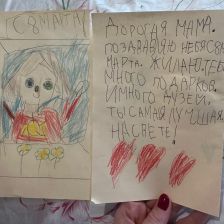 С 8 МАРТА
ДОРОГАЯ МАМА.
ПОЗДРАВЛЯЮ ТЕБЯ С 8
МАРТА. ЖИЛАЮ ТЕБЕ
МНОГО ПОДАРКОВ,
ИМНОГО ДУЗЕЙ,
ТЫ САМАЯ ЛУЧШАЯ
НАСВЕТЕ!